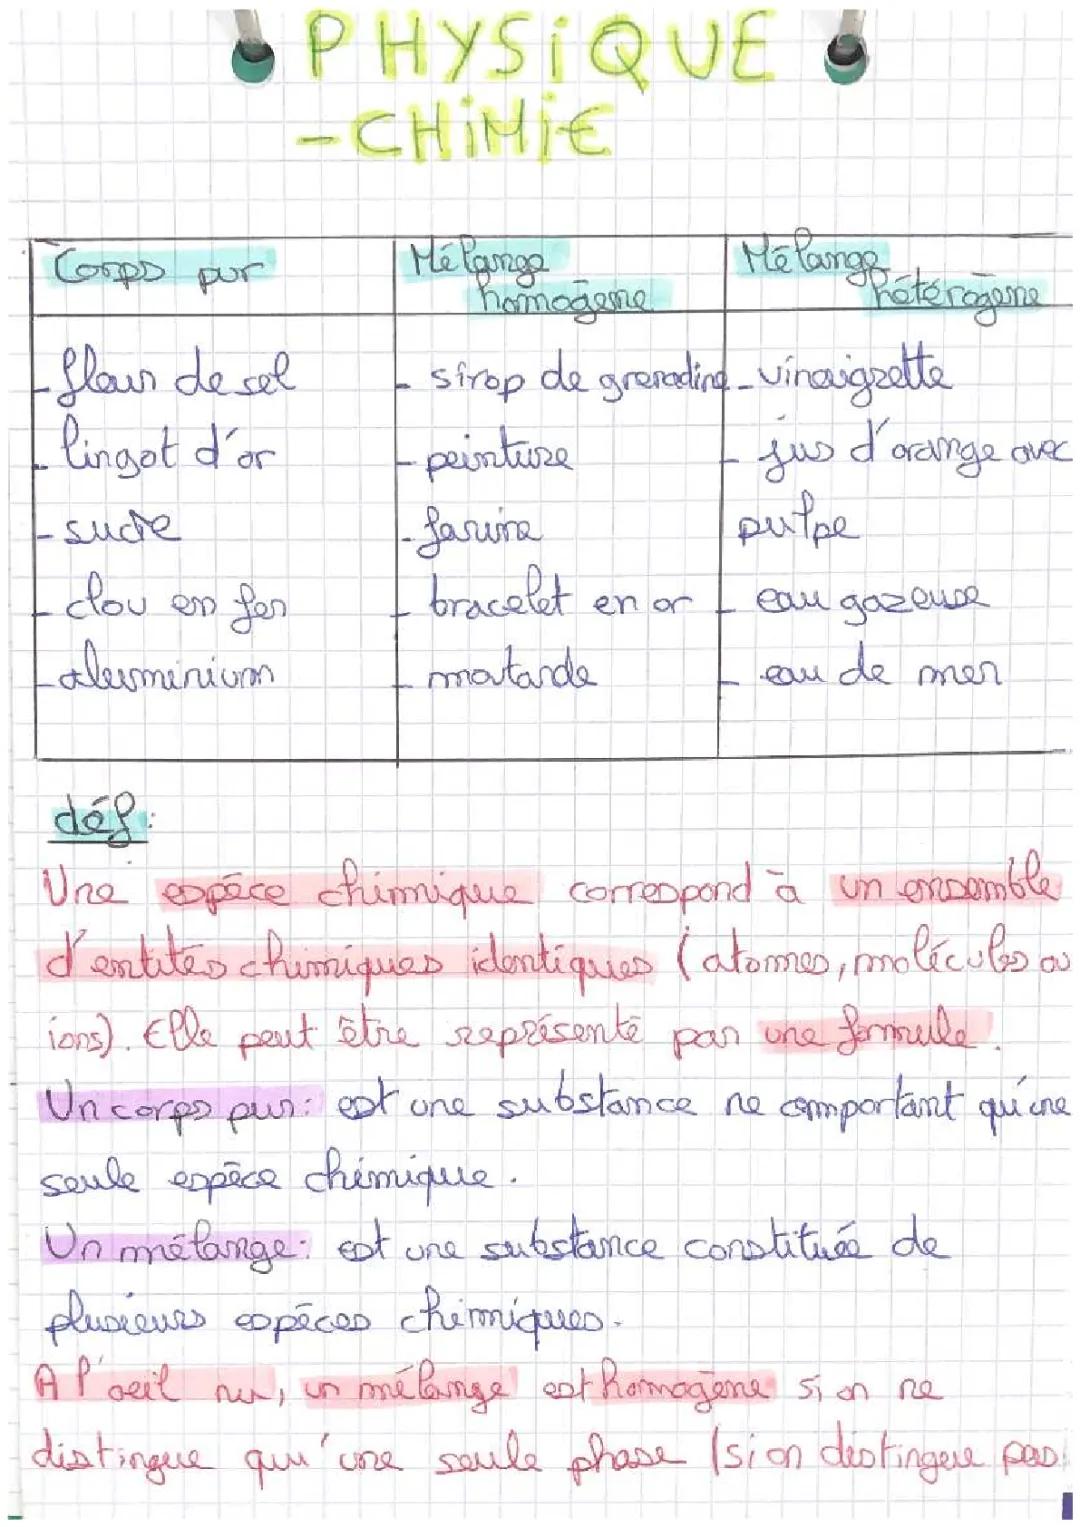 PHYSiQUE
-CHiMiE
Corps pur
Mélange
homogène
Mélange
hétérogène
- fleur de sel
- lingot d'or
- sucre
- clou en fer
- aluminium
- sirop de grenadine
- peinture
- farine
- bracelet en or
- moutarde
- vinaigrette
- jus d'orange avec
pulpe
- eau gazeuse
- eau de mer
déf:
Une espèce chimique correspond à un ensemble
d'entités chimiques identiques (atomes, molécules ou
ions). Elle peut être représenté par une formule.
Un corps pur: est une substance ne comportant qu'une
seule espèce chimique.
Un mélange: est une substance constituée de
plusieurs espèces chimiques.
A l'oeil nu, un mélange est homogène si on ne
distingue qu'une seule phase (si on distingue pas